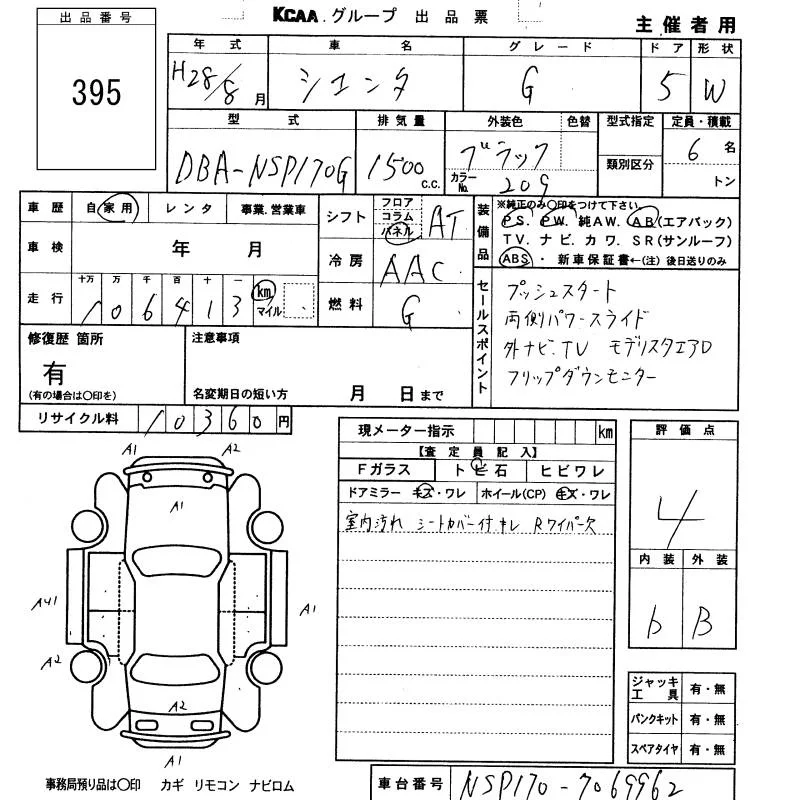 KCAA グループ 出品票
主催者用
出品番号
395
年式 車名 グレード ドア 形状
H28/8月 シエンタ G 5 W
型式 排気量 外装色 色替 型式指定 定員・積載
DBA-NSP170G 1500 C.C. ブラック 6名
カラーNo. 209 類別区分 トン
車歴 自家用 レンタ 事業.営業車
シフト フロア コラム パネル AT
装備品 ※純正のみ〇印をつけて下さい。
PS. PW. 純AW. AB(エアバック)
TV. ナビ. カワ. SR(サンルーフ)
ABS・新車保証書←(注)後日送りのみ
車検 年 月
冷房 AAC
走行 十万 万 千 百 十 一
106413 km マイル
燃料 G
セールスポイント
プッシュスタート
両側パワースライド
外ナビ.TV モデリスタエアロ
フリップダウンモニター
修復歴 箇所
有
(有の場合は〇印を)
注意事項
名変期日の短い方 月 日まで
リサイクル料 10360円
現メーター指示 km
【査定員記入】
Fガラス トビ石 ヒビワレ
ドアミラー キズ・ワレ ホイール(CP) キズ・ワレ
室内汚れ シートカバー付 キレ Rワイパー欠
評価点
4
内装 外装
b B
A1 A2
A1
A41 A1
A2
A2
A1
ジャッキ工具 有・無
パンクキット 有・無
スペアタイヤ 有・無
事務局預り品は〇印 カギ リモコン ナビロム
車台番号 NSP170-7069962